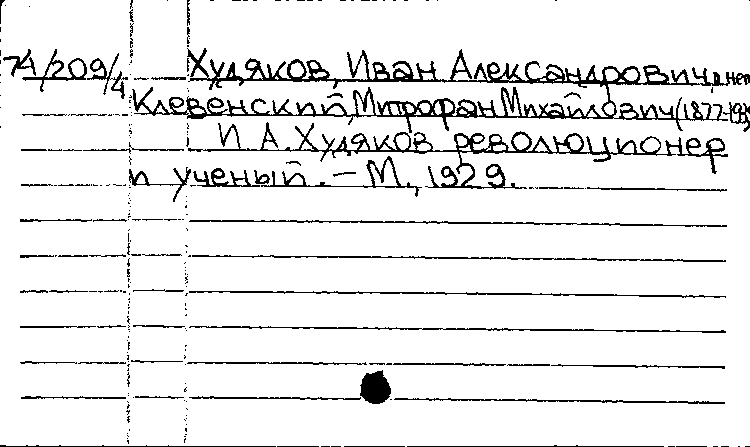 74/209/4 Худяков, Иван Александрович, о нем
Клевенский, Митрофан Михайлович (1877-193
И. А. Худяков революционер
и ученый. — М., 1929.